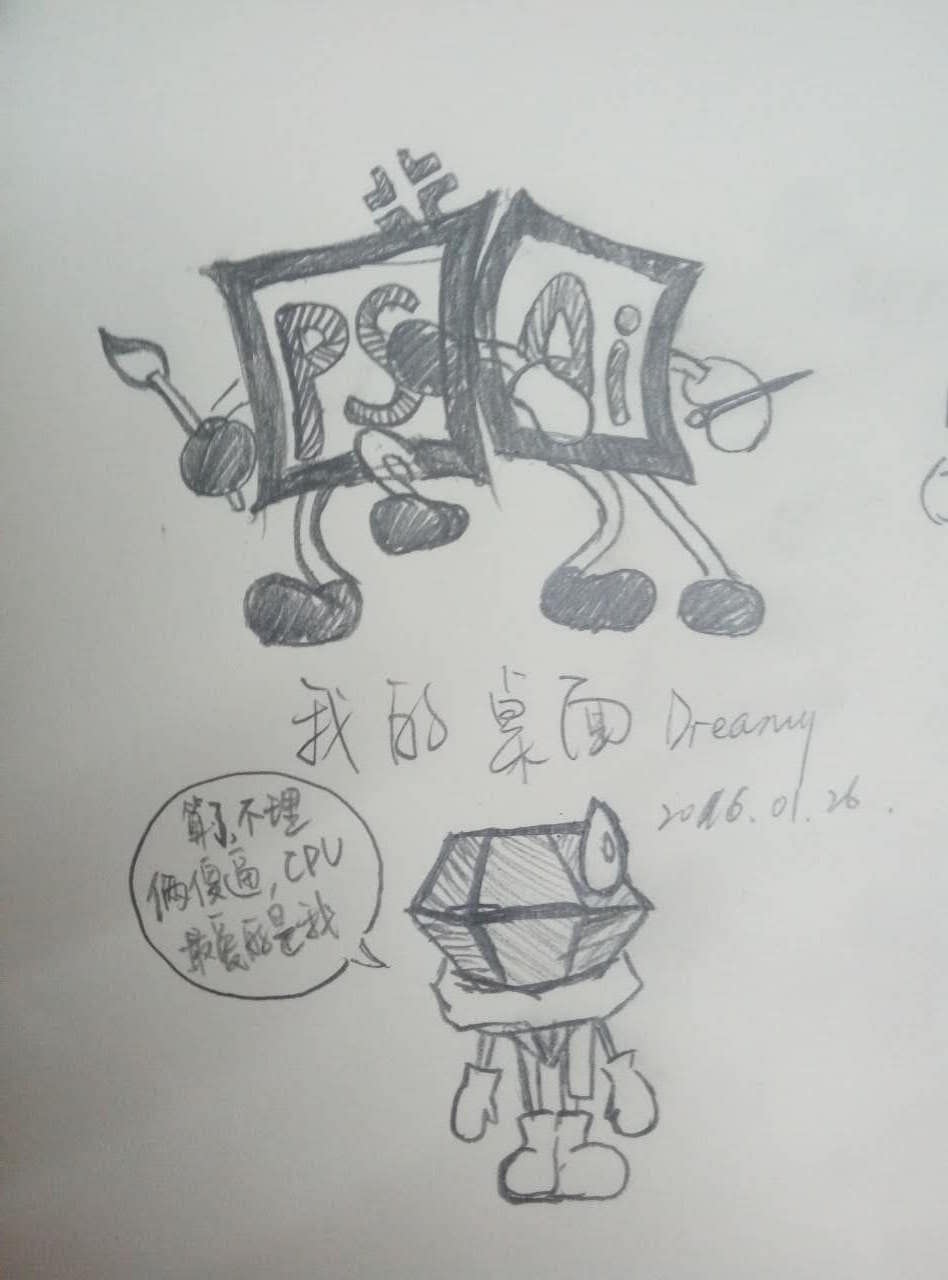 PS Ai
我的桌面 Dreamy
2016.01.26.
算了,不理
俩傻逼,CPU
最爱的是我